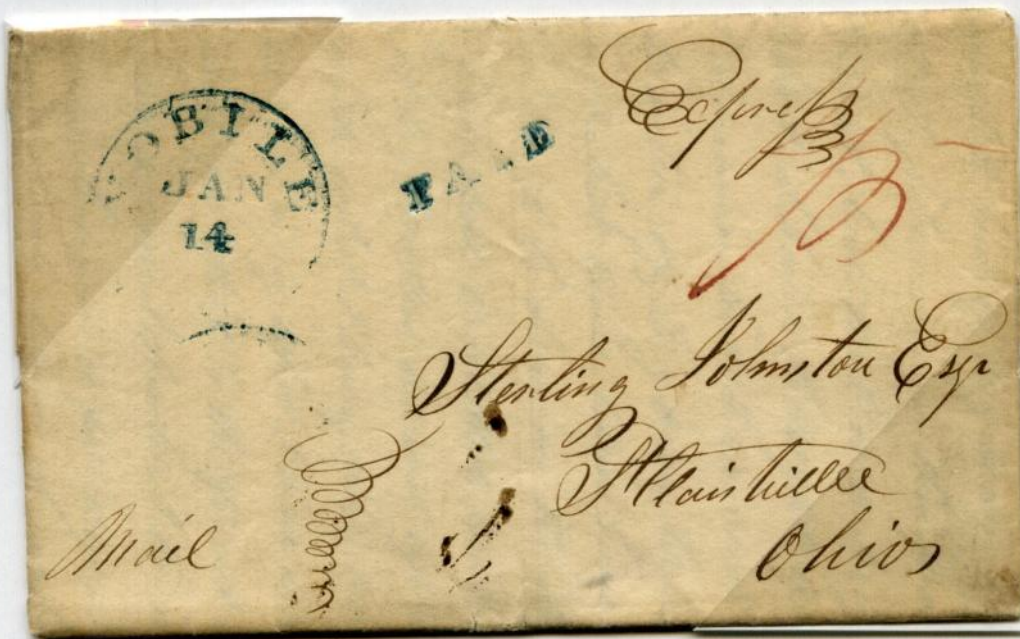 MOBILE
JAN
14
PAID
Express
75
Sterling Johnston Esqr
Plainville
Ohio
Mail